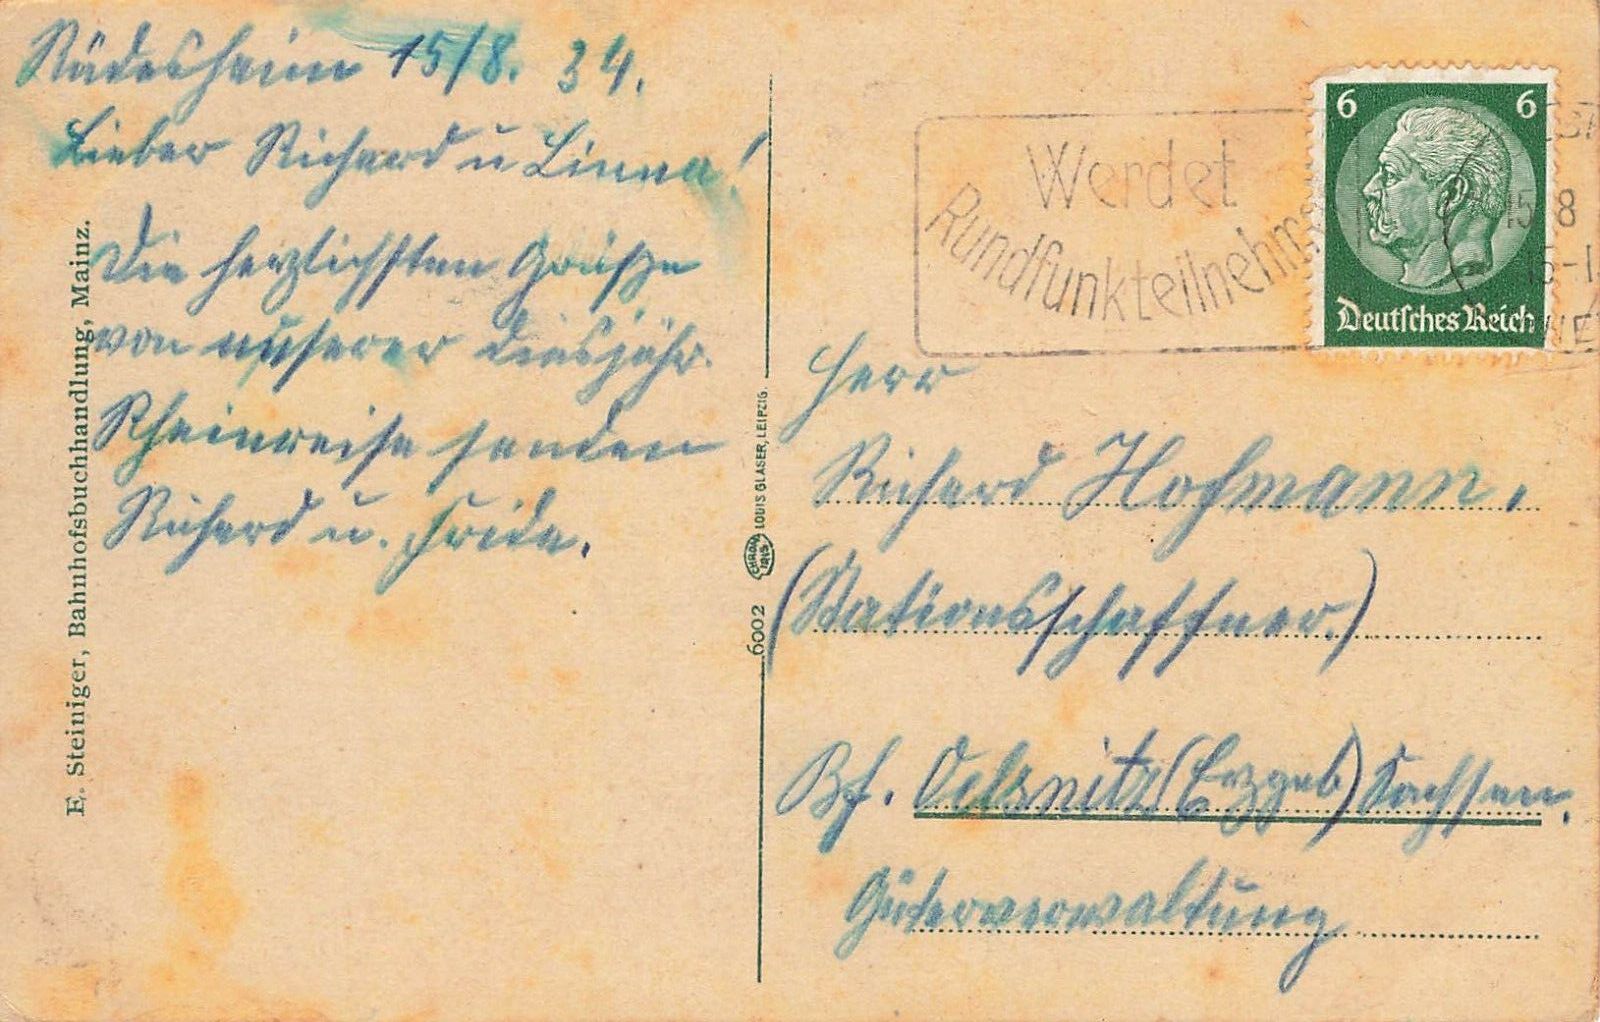 Rüdesheim 15/8. 34.
Lieber Richard u Linna!
Die herzlichsten Grüße
von unserer diesjähr.
Rheinreise senden
Richard u. Frida.
E. Steiniger, Bahnhofsbuchhandlung, Mainz.
6002
CHROM
LOUIS GLASER, LEIPZIG.
Werdet
Rundfunkteilnehm
6 6
Deutsches Reich
15 8
Herr
Richard Hofmann,
(Stationsschaffner.)
Bf. Oelsnitz (Erzgeb) Sachsen.
Güterverwaltung